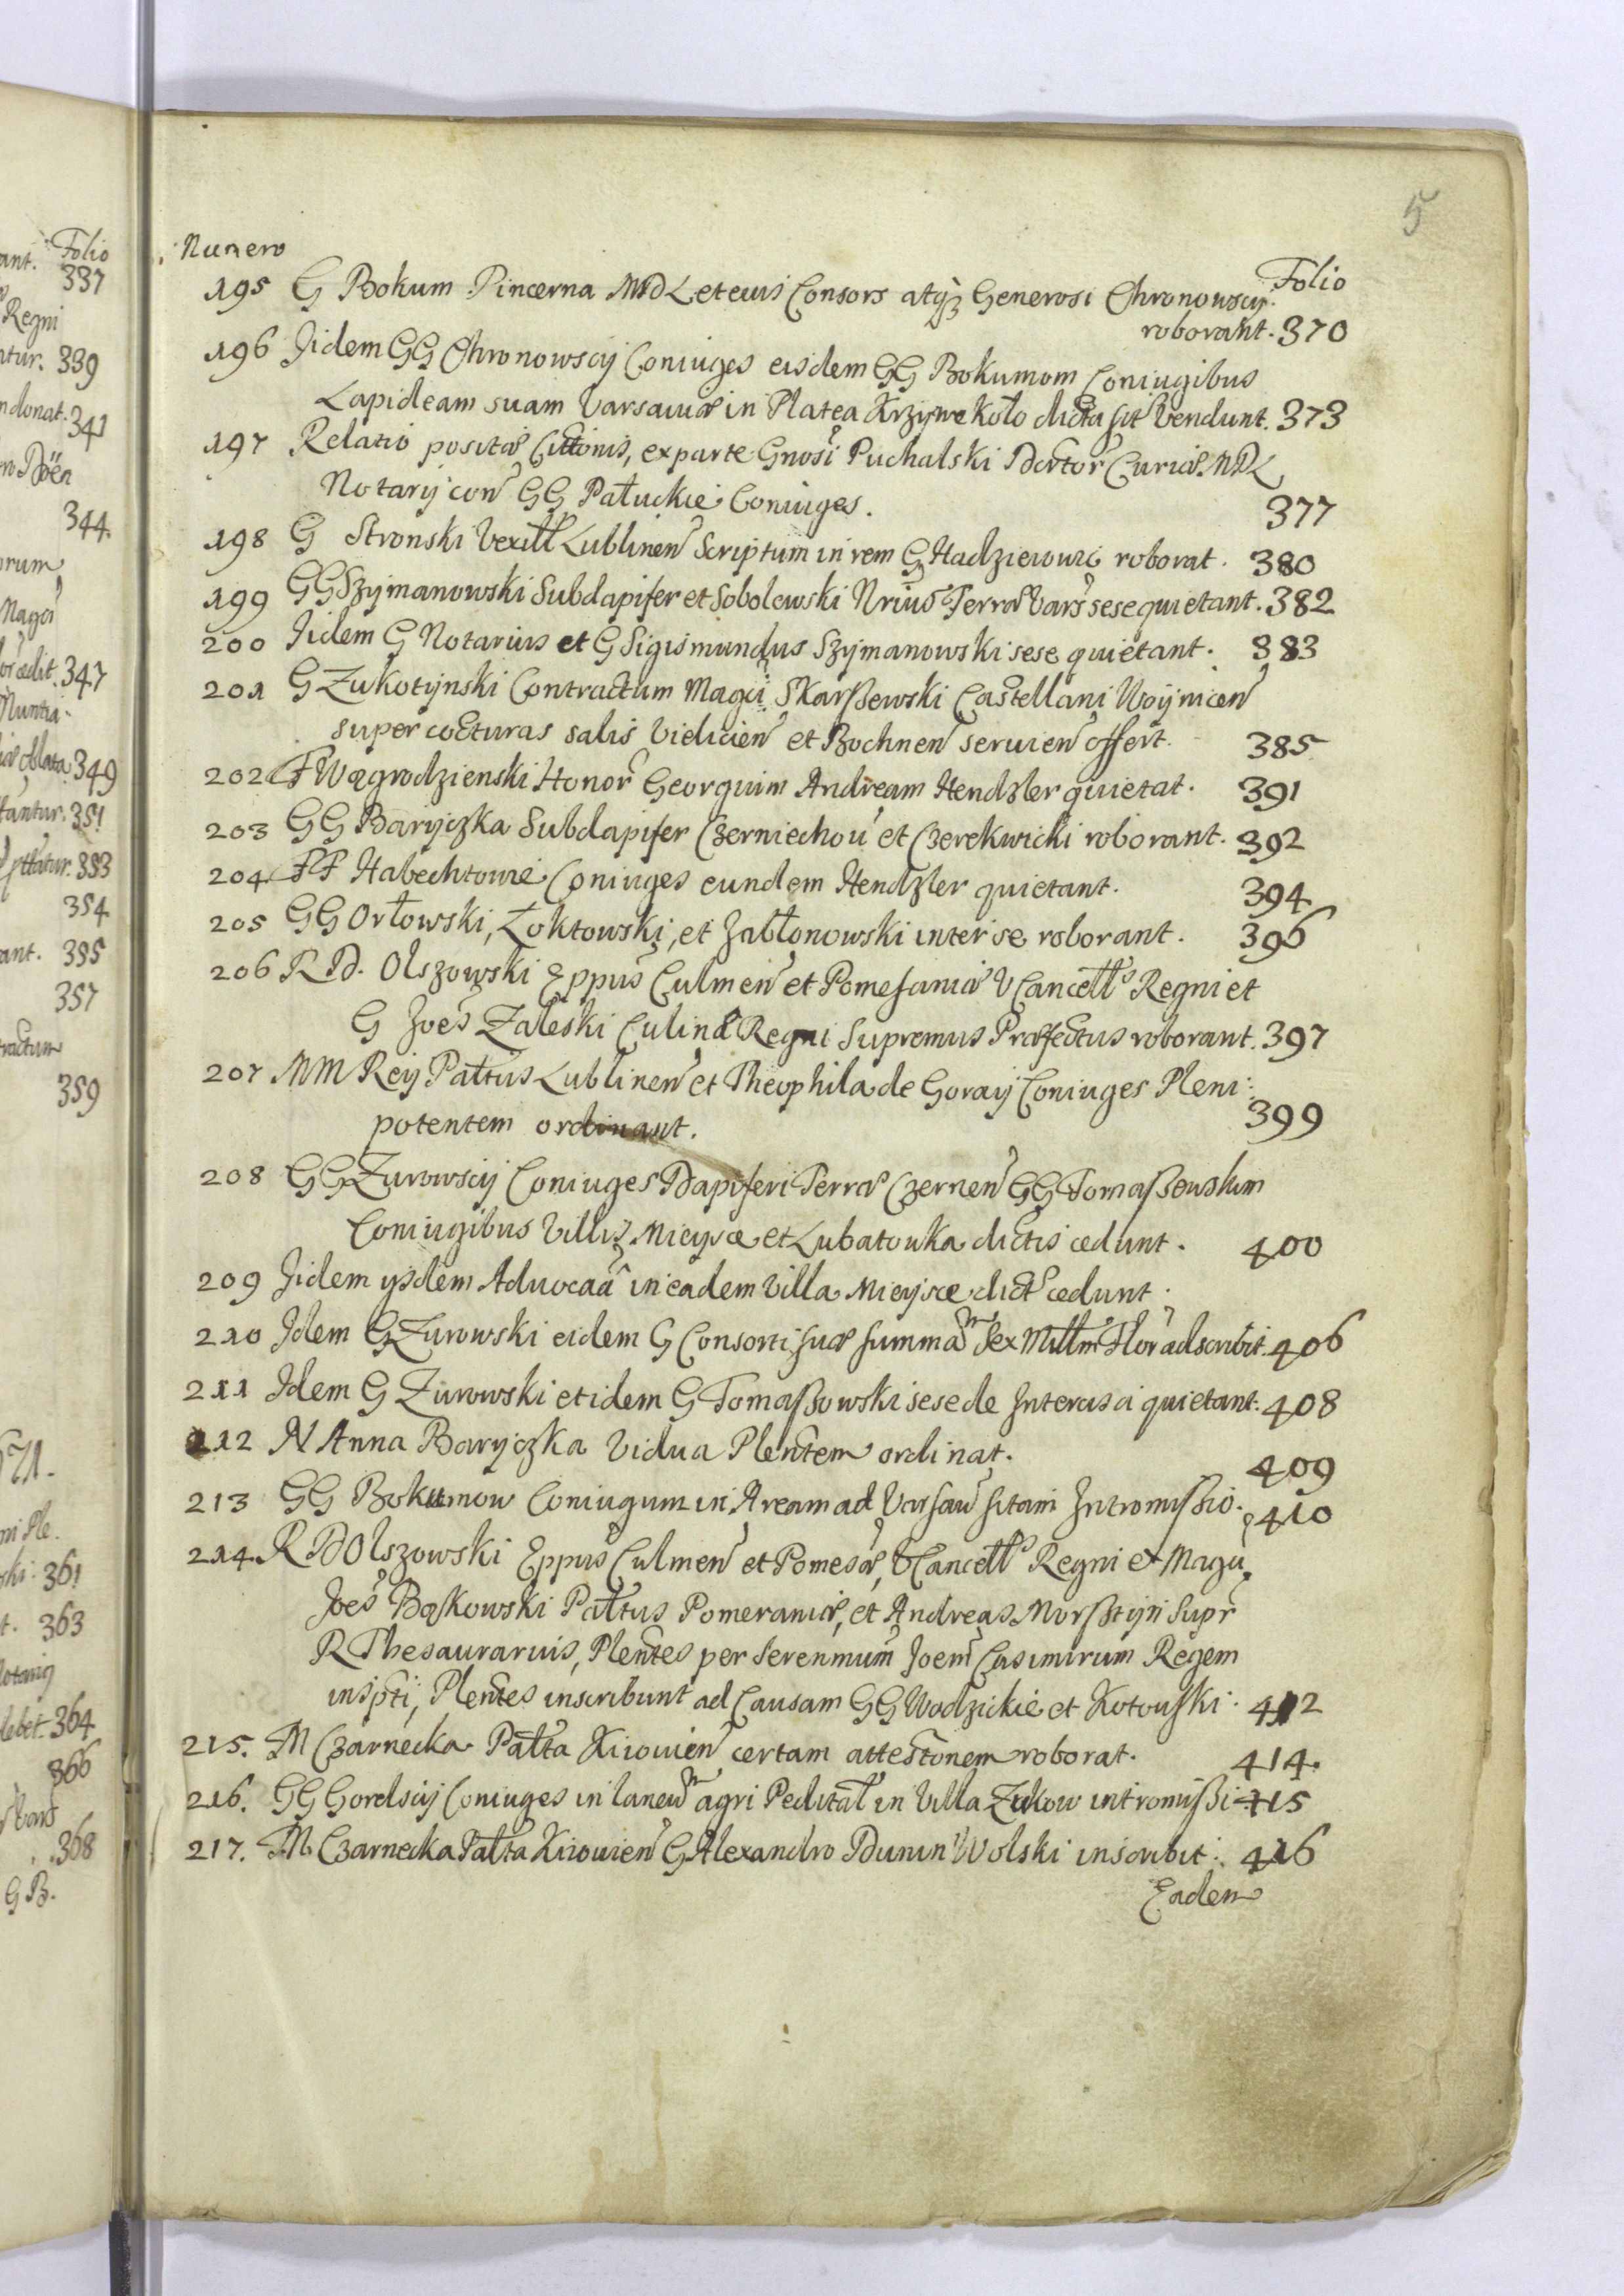 5
Numero
Folio
195 G Bokum Pincerna MDL et eius Consors atq3 Generosi Chronowscy
roborant. 370
196 Jidem GG Chronowscij Coniuges eisdem GG Bokumom Coniugibus
Lapideam suam Varsaviæ in Platea Krzywe Koło dicta sit Vendunt. 373
197 Relatio positæ Cittonis, ex parte Gnosi Puchalski Curiæ MDL
Notarij con GG Pałuckie Coniuges. 377
198 G Stronski Vexill Lublinen Scriptum in rem G Hadziewicz roborat. 380
199 GG Szijmanowski Subdapifer et Sobolewski Nrius Terræ Vars sese quietant. 382
200 Jidem G Notarius et G Sigismundus Szijmanowski sese quietant. 383
201 G Zukotijnski Contractum Magci Skarßewski Castellani Woijnicen
super cocturas salis Vielicien et Bochnen seruien offert. 385
202 F Wągrodzienski Honor Georguim Andream Hendzler quietat. 391
203 GG Barijczka Subdapifer Czerniechou et Czerekwicki roborant. 392
204 FF Habechtowie Coniuges eundem Hendzler quietant. 394
205 GG Orłowski, Łoktowski, et Jabłonowski inter se roborant. 396
206 R D. Olszowski Eppus Culmen et Pomesaniæ VCancells Regni et
G Joes Zaleski Culinæ Regni Supremus Præfectus roborant. 397
207 MM Reij Paltus Lublinen et Theophila de Goraij Coniuges Pleni:
potentem ordinant. 399
208 GG Zurowscij Coniuges Dapiferi Terræ Czernen GG Tomaßewskim
Coniugibus Villis Mieysce et Lubatowka dictis cedunt. 400
209 Jidem ijsdem Aduocaa in eadem Villa Mieysce dict cedunt.
210 Jdem G Zurowski eidem G Consorti suæ summam sex Millm Flor adscribit. 406
211 Jdem G Zurowski et idem G Tomaßowski sese de Intercisa quietant. 408
212 N Anna Baryczka Vidua Plentem ordinat. 409
213 GG Bokumow Coniugum in Aream ad Varsau sitam Intromißio. 410
214. R D Olszowski Eppus Culmen et Pomesæ, VCancells Regni et Magci
Joes Bąkowski Paltus Pomeraniæ, et Andreas Morßtijn Supr
R Thesaurarius, Plentes per Serenmum Joem Casimirum Regem
inspti, Plentes inscribunt ad Causam GG Wodzickie et Kotouski. 412
215. M Czarnecka Palta Kiiouien certam attestonem roborat. 414.
216. GG Gordscij Coniuges in laneum agri Peditał in Villa Zukow intromißi. 415
217. M Czarnecka Palta Kiiouien G Alexandro Dunin Wolski inscribit. 416
Eadem